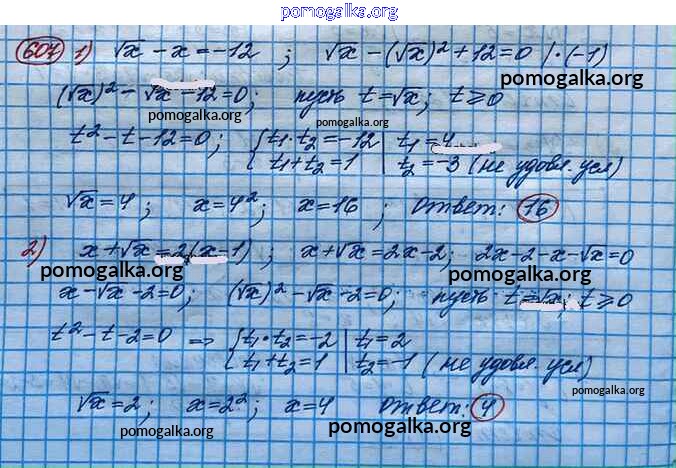 pomogalka.org
607 1) √x - x = -12 ; √x - (√x)² + 12 = 0 | · (-1)
pomogalka.org
(√x)² - √x - 12 = 0; пусть t = √x; t ⩾ 0
pomogalka.org pomogalka.org
t² - t - 12 = 0; { t₁ · t₂ = -12 | t₁ = 4
t₁ + t₂ = 1 | t₂ = -3 (не удовл. усл)
√x = 4; x = 4²; x = 16; Ответ: 16
2) x + √x = 2(x - 1) ; x + √x = 2x - 2; 2x - 2 - x - √x = 0
pomogalka.org pomogalka.org
x - √x - 2 = 0; (√x)² - √x - 2 = 0; пусть t = √x; t ⩾ 0
pomogalka.org pomogalka.org
t² - t - 2 = 0 => { t₁ · t₂ = -2 | t₁ = 2
t₁ + t₂ = 1 | t₂ = -1 (не удовл. усл)
pomogalka.org
√x = 2; x = 2²; x = 4 Ответ: 4
pomogalka.org pomogalka.org